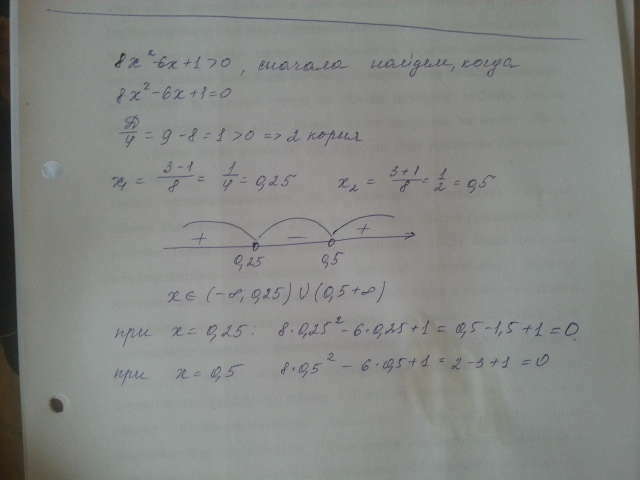 8x²-6x+1>0, сначала найдем, когда
8x²-6x+1=0
Д/4 = 9-8=1>0 => 2 корня
x₁ = (3-1)/8 = 1/4 = 0,25 x₂ = (3+1)/8 = 1/2 = 0,5
+ − +
0,25 0,5
x ∈ (-∞, 0,25) ∪ (0,5 +∞)
при x = 0,25: 8·0,25² - 6·0,25+1 = 0,5-1,5+1=0.
при x = 0,5 8·0,5² - 6·0,5+1 = 2-3+1 = 0